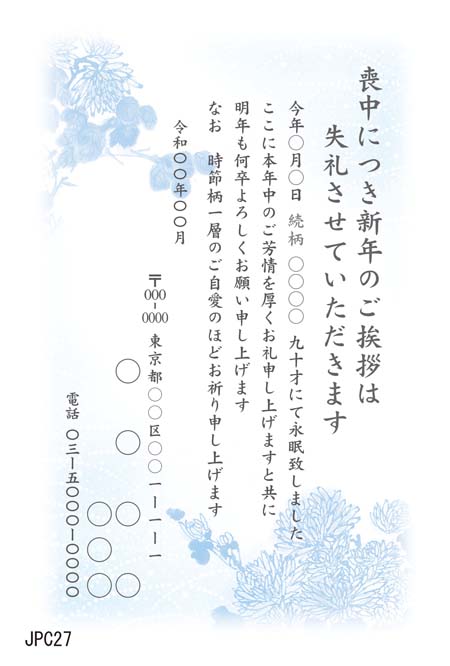 喪中につき新年のご挨拶は
失礼させていただきます
今年〇月〇日 続柄 〇〇〇〇 九十才にて永眠致しました
ここに本年中のご芳情を厚くお礼申し上げますと共に
明年も何卒よろしくお願い申し上げます
なお 時節柄一層のご自愛のほどお祈り申し上げます
令和〇〇年〇〇月
〒000-0000 東京都〇〇区〇〇一ー一ー一
〇 〇 〇〇
〇〇〇
電話 〇三ー五〇〇〇ー〇〇〇〇
JPC27